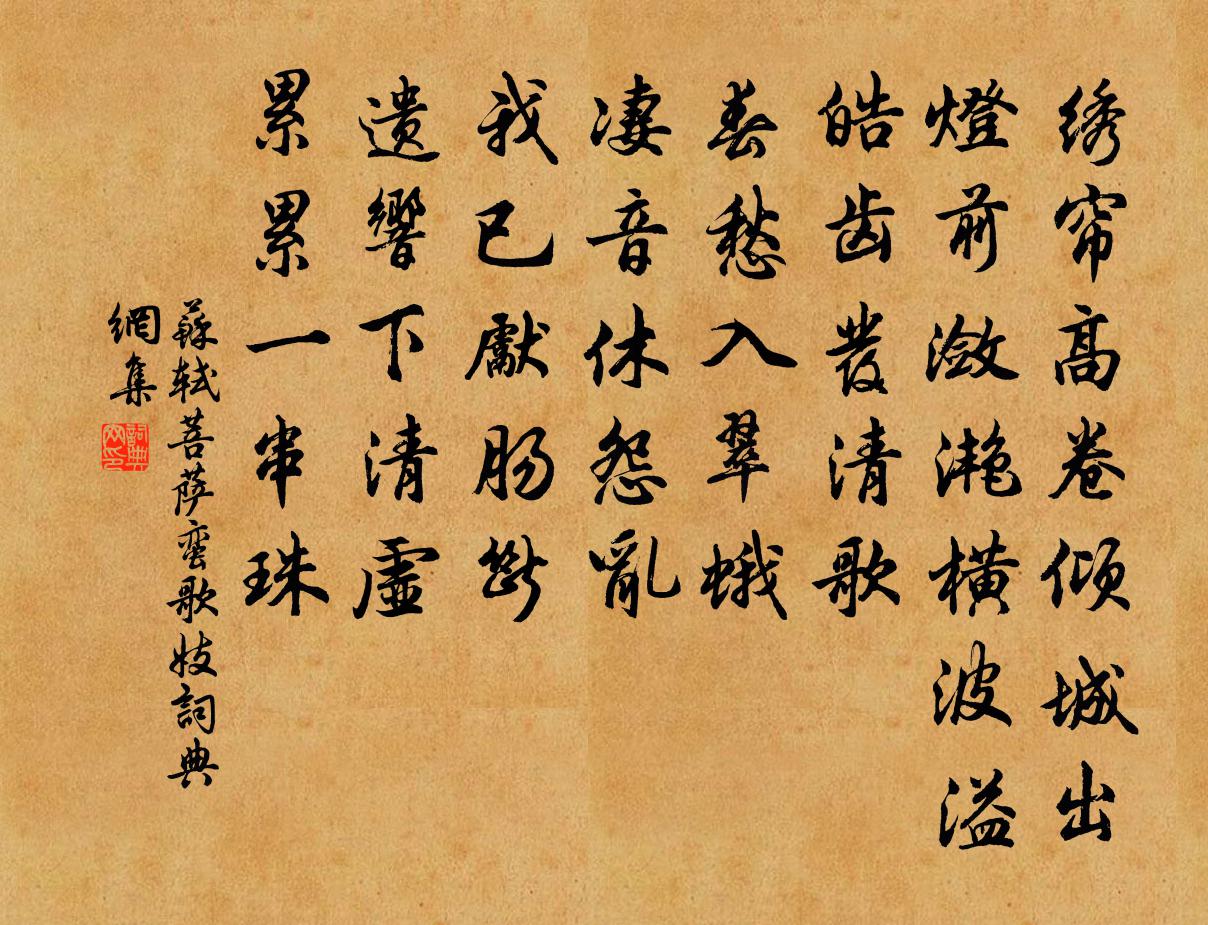 绣帘高卷倾城出
燈前潋滟横波溢
皓齿發清歌
春愁入翠蛾
凄音休怨亂
我已獻肠斷
遗響下清虚
累累一串珠
蘇轼菩萨蛮歌妓詞典
網集
詞典
网印